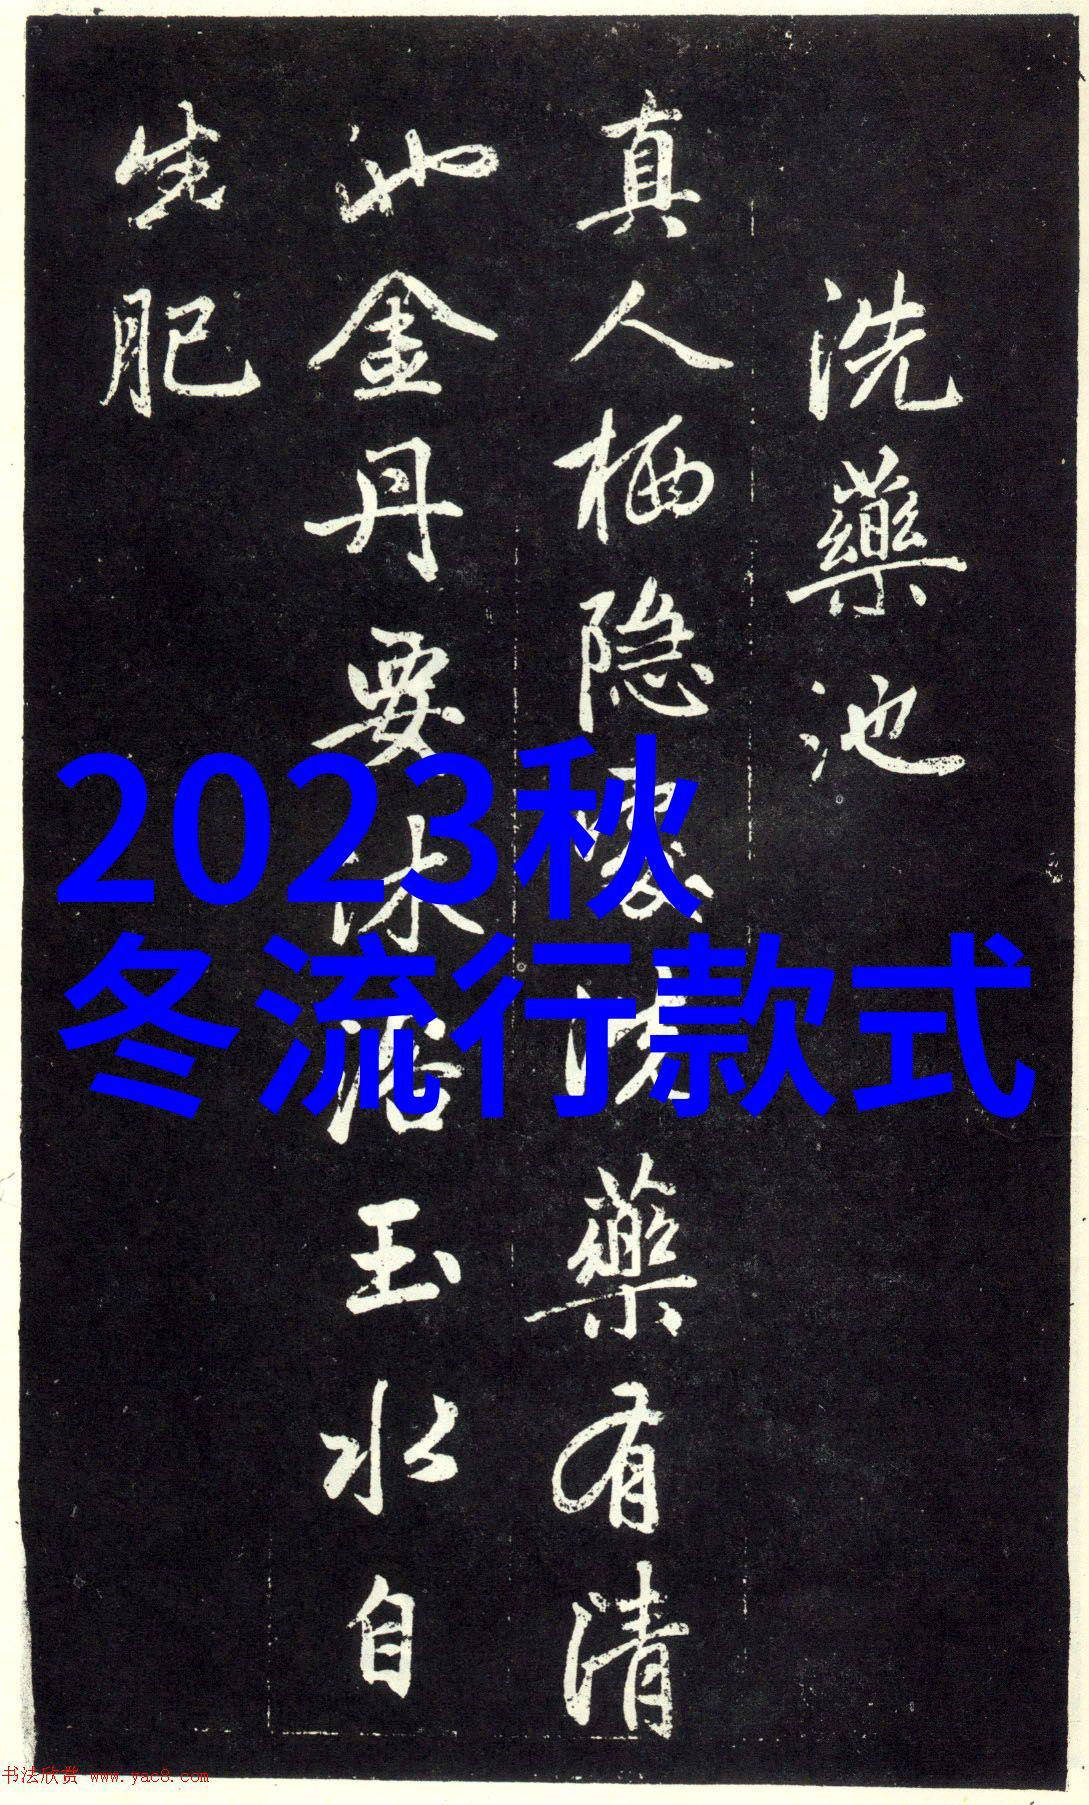 洗藥池
真人栖隐處洗藥有清
池金丹要沐浴玉水自
生肥
2023秋
冬流行款式
书法欣赏 www.yac8.com